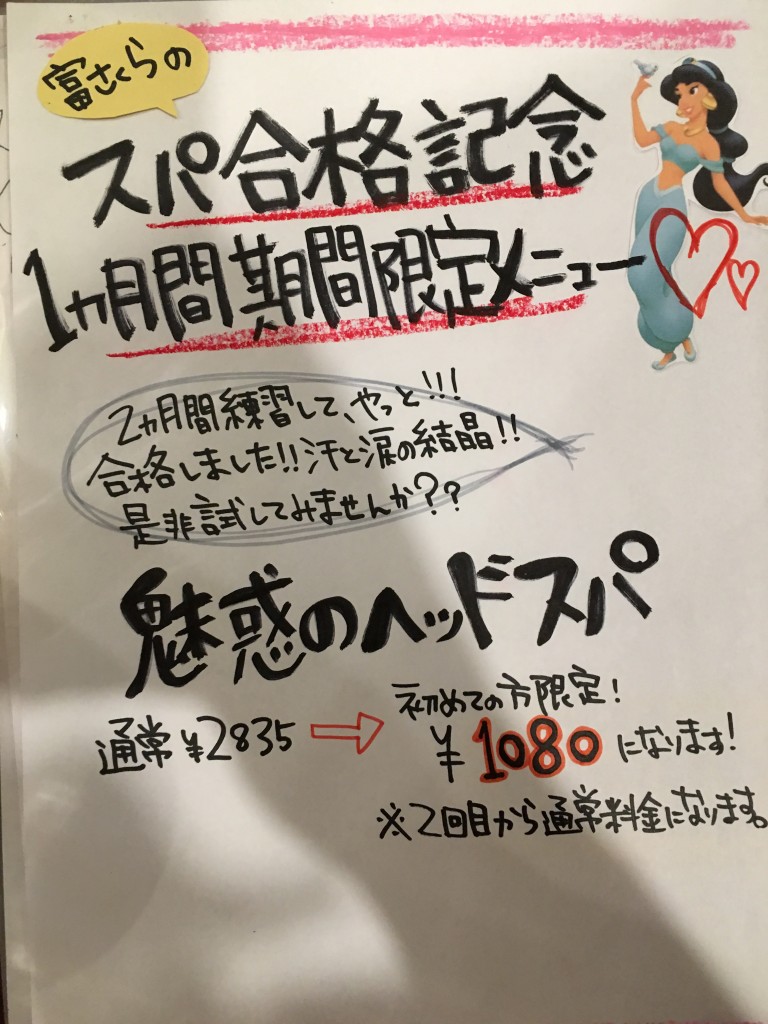 富さくらの
スパ合格記念
1ヵ月間期間限定メニュー
2ヵ月間練習して、やっと!!!
合格しました!!汗と涙の結晶!!
是非試してみませんか??
魅惑のヘッドスパ
初めての方限定!
通常¥2835 → ¥1080になります!
※2回目から通常料金になります。